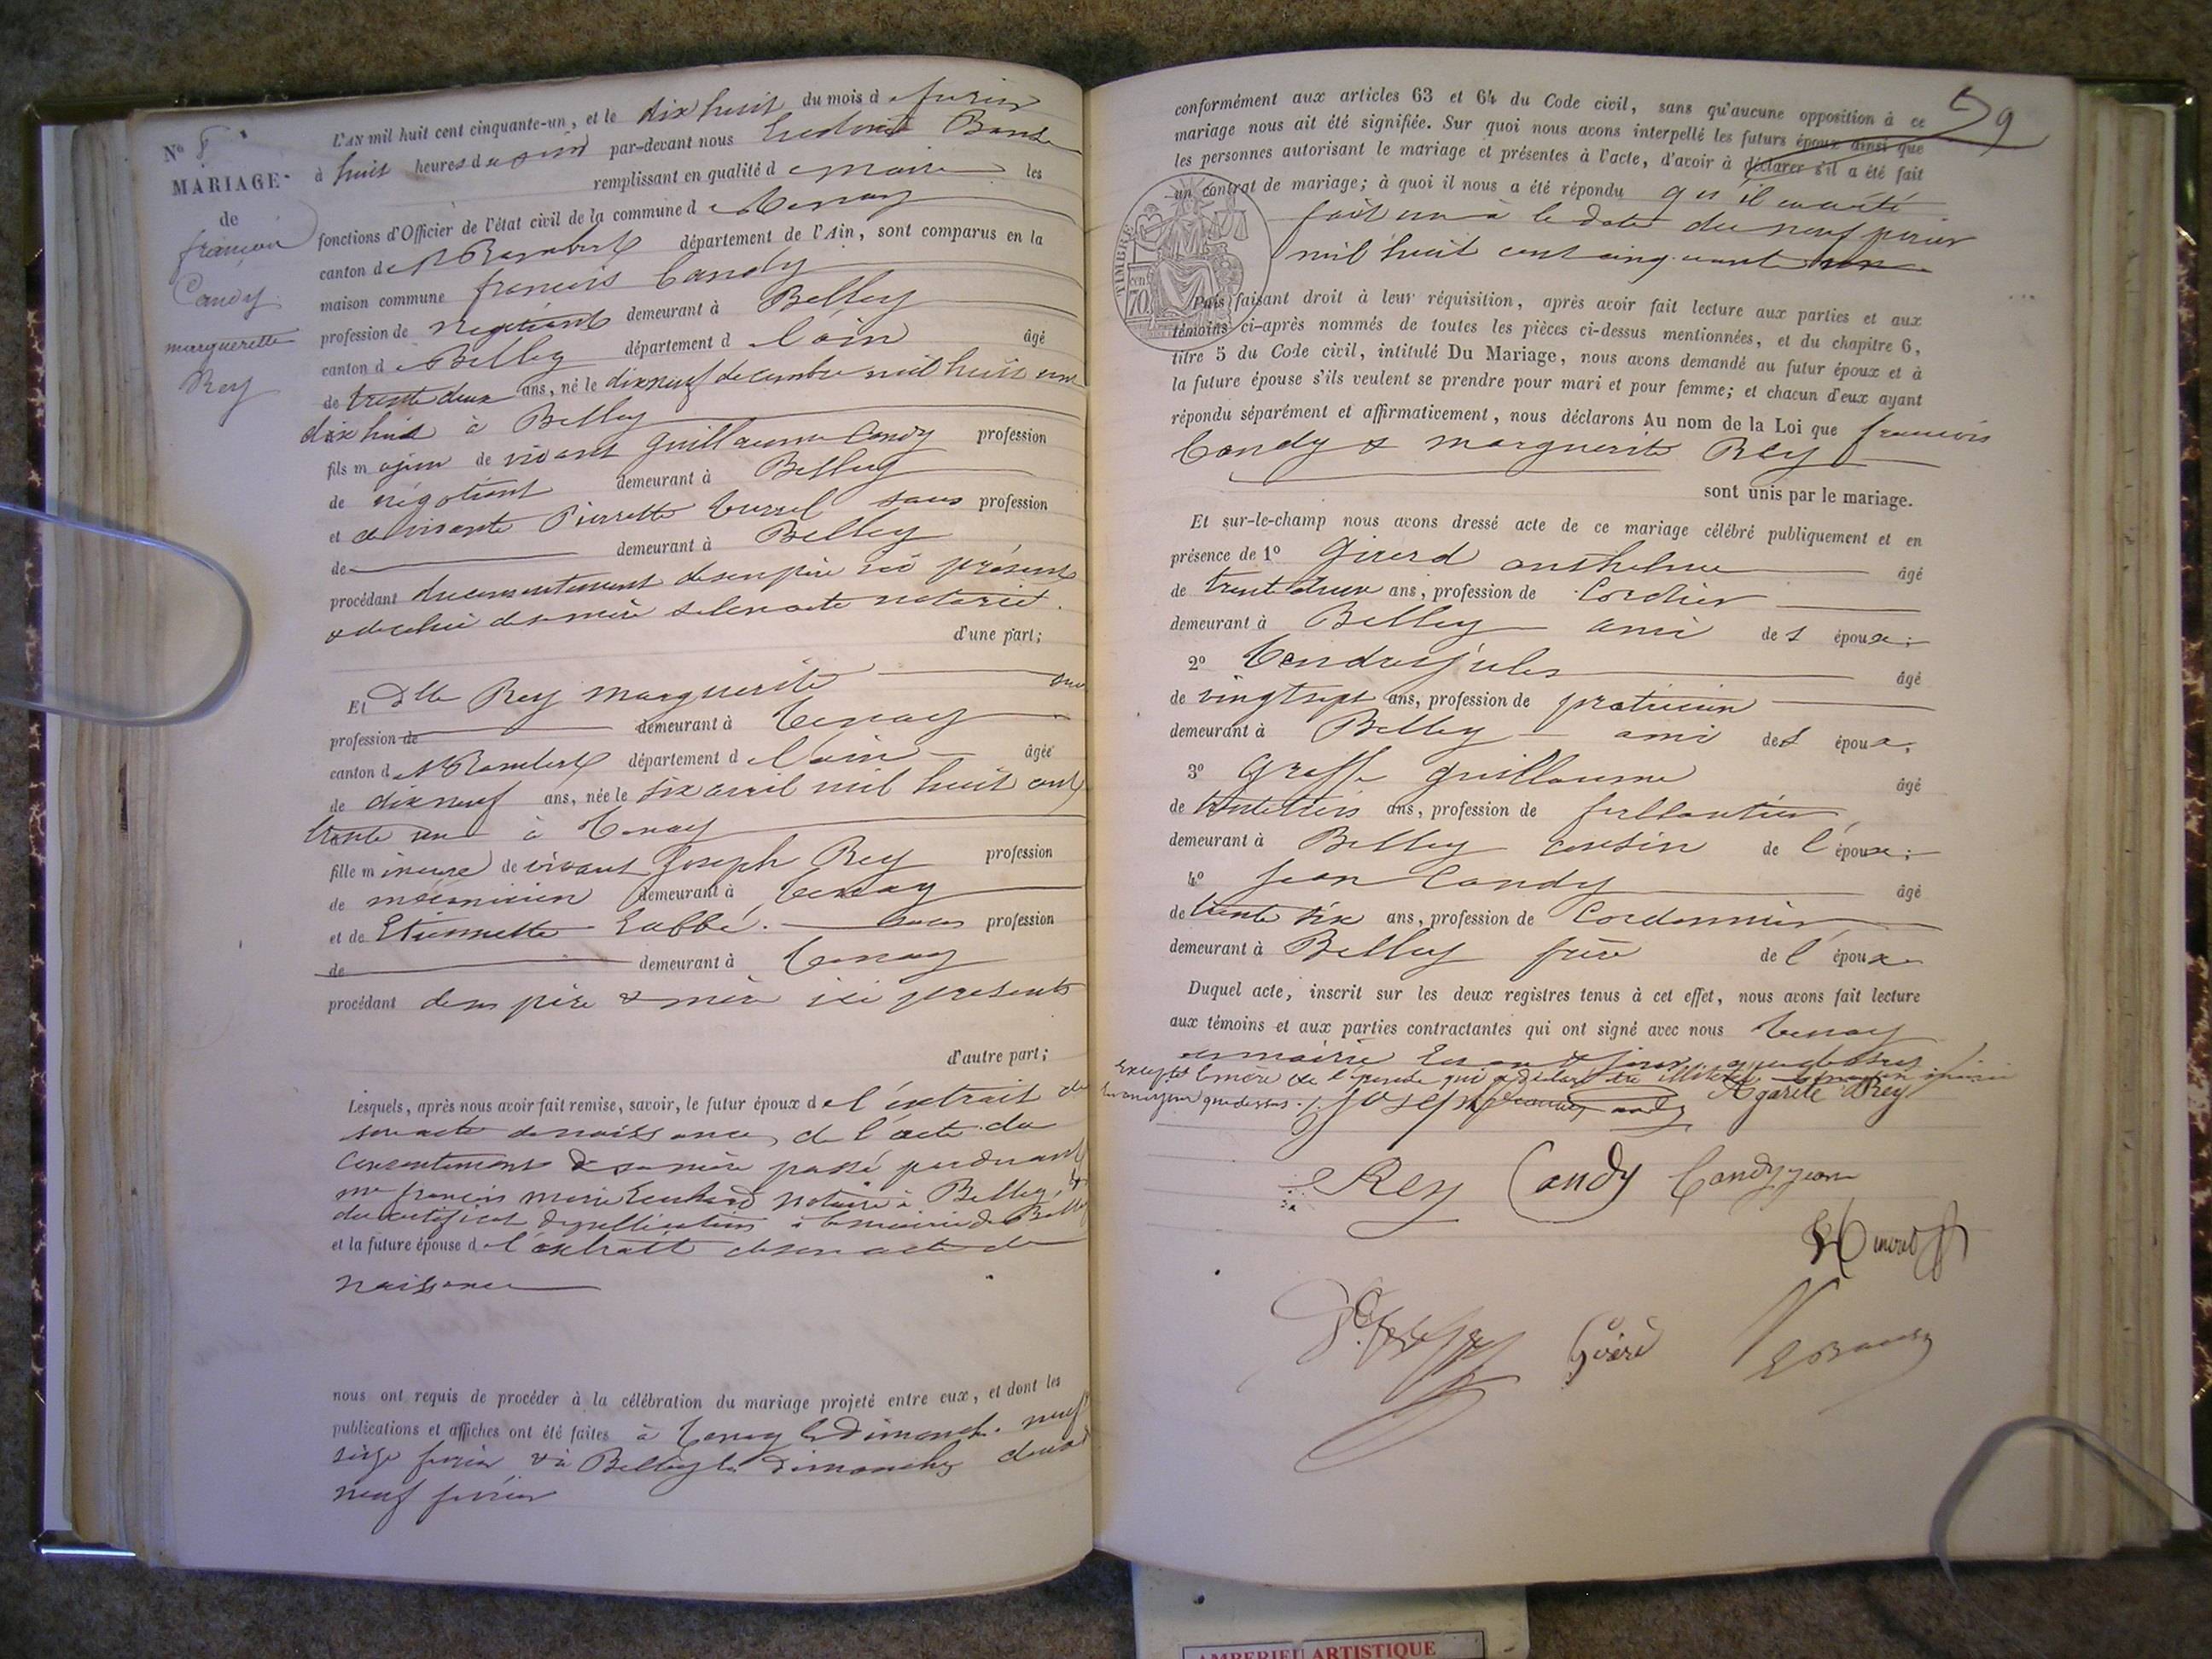 N° 8
MARIAGE
de
françois
Candy
marguerette
Rey
L'AN mil huit cent cinquante-un, et le dix huit du mois de fevrier
à huit heures du soir par-devant nous
remplissant en qualité de maire les
fonctions d'Officier de l'état civil de la commune de Tenay
canton de St Rambert département de l'Ain, sont comparus en la
maison commune françois Candy
profession de negotiant demeurant à Belley
canton de Belley département de l'ain âgé
de trente deux ans, né le dix neuf decembre mil huit cent
dix huit à Belley
fils majeur de vivant Guillaume Candy profession
de négotiant demeurant à Belley
et de vivante Pierrette sans profession
de demeurant à Belley
procédant du consentement de son père ici présent
& de celui de sa mère selon acte notarié.
d'une part;
Et Dlle Rey Marguerite sans
profession de demeurant à Tenay
canton de St Rambert département de l'ain âgée
de dix neuf ans, née le six avril mil huit cent
trente un à Tenay
fille mineure de vivant Joseph Rey profession
de mécanicien demeurant à Tenay
et de Etiennette Labbé. sans profession
de demeurant à Tenay
procédant de ses père & mère ici presents
d'autre part;
Lesquels, après nous avoir fait remise, savoir, le futur époux de l'extrait de
son acte de naissance, de l'acte du
consentement de sa mère passé pardevant
me françois marie notaire à Belley, &
du certificat de publication à la mairie de Belley
et la future épouse de l'extrait de son acte de
naissance
nous ont requis de procéder à la célébration du mariage projeté entre eux, et dont les
publications et affiches ont été faites à Tenay les Dimanche neuf
seize fevrier & à Belley les Dimanches deux &
neuf fevrier
59
conformément aux articles 63 et 64 du Code civil, sans qu'aucune opposition à ce
mariage nous ait été signifiée. Sur quoi nous avons interpellé les futurs époux ainsi que
les personnes autorisant le mariage et présentes à l'acte, d'avoir à déclarer s'il a été fait
un contrat de mariage; à quoi il nous a été répondu qu'il en a été
fait un à la date du neuf fevrier
mil huit cent cinquante un
TIMBRE
70 cent
Puis faisant droit à leur réquisition, après avoir fait lecture aux parties et aux
témoins ci-après nommés de toutes les pièces ci-dessus mentionnées, et du chapitre 6,
titre 5 du Code civil, intitulé Du Mariage, nous avons demandé au futur époux et à
la future épouse s'ils veulent se prendre pour mari et pour femme; et chacun d'eux ayant
répondu séparément et affirmativement, nous déclarons Au nom de la Loi que françois
Candy & Marguerite Rey
sont unis par le mariage.
Et sur-le-champ nous avons dressé acte de ce mariage célébré publiquement et en
présence de 1° Girerd anthelme âgé
de trente deux ans, profession de Cordier
demeurant à Belley ami des époux;
2° jules âgé
de vingt sept ans, profession de praticien
demeurant à Belley ami des époux;
3° Guillaume âgé
de trente trois ans, profession de ferblantier
demeurant à Belley cousin de l'époux;
4° Jean Candy âgé
de trente six ans, profession de Cordonnier
demeurant à Belley frère de l'époux
Duquel acte, inscrit sur les deux registres tenus à cet effet, nous avons fait lecture
aux témoins et aux parties contractantes qui ont signé avec nous Tenay
en mairie les an & jour que dessus
Excepté la mère de l'épouse qui a déclaré être illitérée
que dessus. Joseph Rey
Rey Candy Candy jean